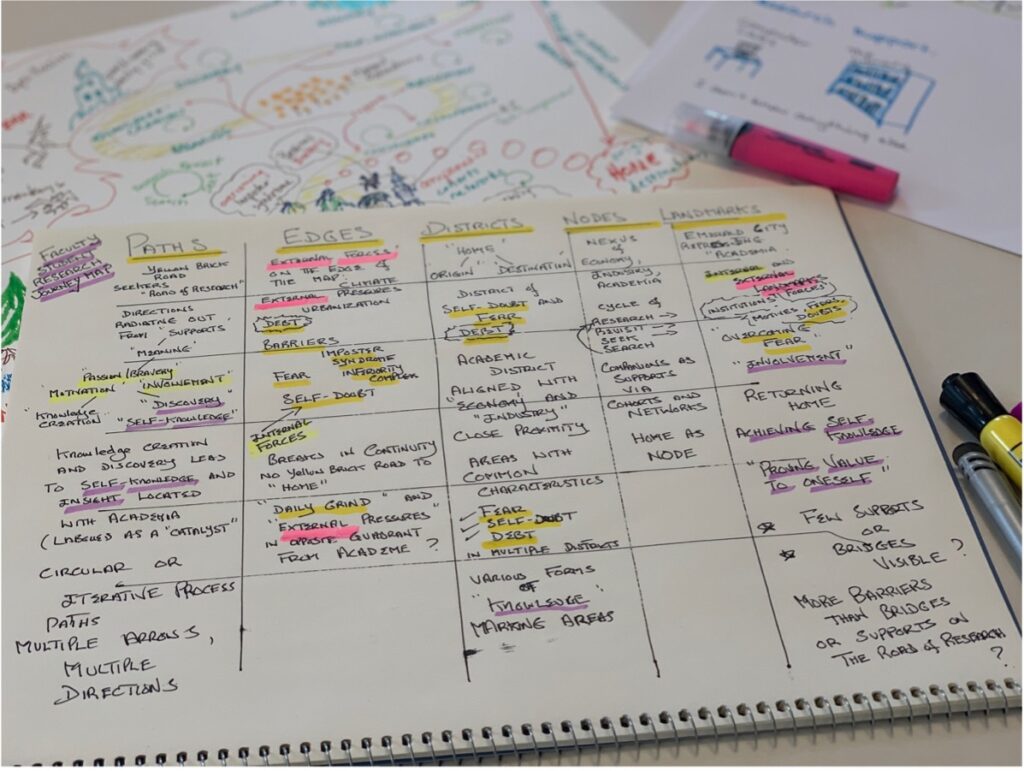 FACULTY
STUDENT
RESEARCH
JOURNEY MAP
PATHS
YELLOW BRICK
ROAD
SEEKERS "ROAD OF RESEARCH"
DIRECTIONS
RADIATING OUT
FROM "SUPPORTS"
"MEANING"
PASSION/BRAVERY
"MOTIVATION" "INVOLVEMENT"
"DISCOVERY"
"KNOWLEDGE
CREATION "SELF-KNOWLEDGE"
KNOWLEDGE CREATION
AND DISCOVERY LEAD
TO SELF-KNOWLEDGE AND
INSIGHT LOCATED
WITH ACADEMIA
(LABELED AS A "CATALYST"
CIRCULAR OR
ITERATIVE PROCESS
PATHS
MULTIPLE ARROWS,
MULTIPLE
DIRECTIONS
EDGES
EXTERNAL FORCES
ON THE EDGE OF
THE MAP:
CLIMATE
EXTERNAL PRESSURES
URBANIZATION
DEBT
BARRIERS
IMPOSTER
SYNDROME
FEAR INFERIORITY
COMPLEX
SELF-DOUBT
INTERNAL
FORCES
BREAKS IN CONTINUITY
NO YELLOW BRICK ROAD TO
"HOME"
"DAILY GRIND" AND
"EXTERNAL PRESSURES"
IN OPPOSITE QUADRANT
FROM ACADEME?
DISTRICTS
"HOME"
ORIGIN DESTINATION
DISTRICT OF
SELF-DOUBT AND
FEAR
DEBT
ACADEMIC
DISTRICT
ALIGNED WITH
"ECONOMY" AND
"INDUSTRY"
CLOSE PROXIMITY
AREAS WITH
COMMON
CHARACTERISTICS
FEAR
SELF-DOUBT
DEBT
IN MULTIPLE DISTRICTS
VARIOUS FORMS
"OF
KNOWLEDGE"
MARKING AREAS
NODES
NEXUS
OF
ECONOMY,
INDUSTRY,
ACADEMIA
CYCLE OF
RESEARCH
REVISIT
SEEK
SEARCH
COMPANIONS AS
SUPPORTS
VIA
COHORTS AND
NETWORKS
HOME AS
NODE
LANDMARKS
EMERALD CITY
REPRESENTING
"ACADEMIA"
INTERNAL AND
EXTERNAL
LANDMARKS
INSTITUTIONS FORCES
MOTIVES FEARS,
DOUBTS
"OVERCOMING
FEAR"
"INVOLVEMENT"
RETURNING
HOME
ACHIEVING SELF
KNOWLEDGE
"PROVING VALUE
TO ONESELF"
FEW SUPPORTS
OR
BRIDGES
VISIBLE?
MORE BARRIERS
THAN BRIDGES
OR SUPPORTS ON
THE ROAD OF RESEARCH
?
Research Support
I don't know anything else
HOME